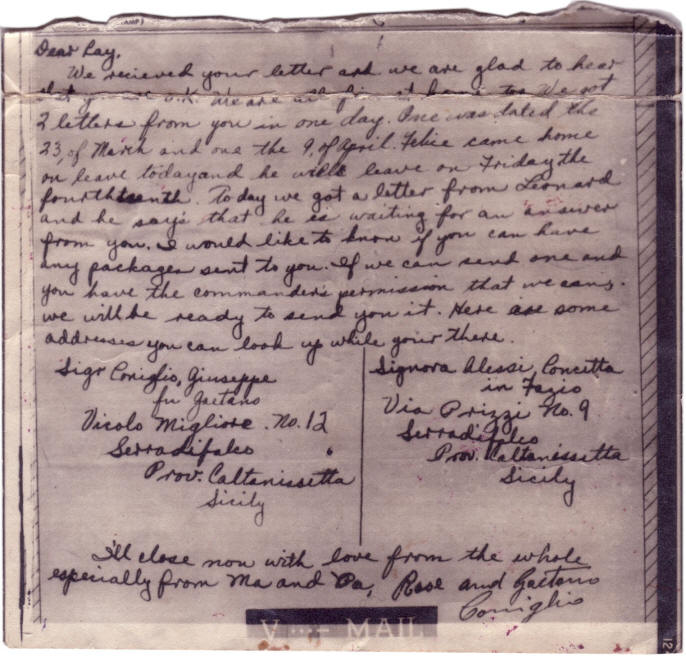 Dear Ray,
We recieved your letter and we are glad to hear
that you are O.K. We are all fine at home too. We got
2 letters from you in one day. One was dated the
23, of March and one the 9, of April. Felice came home
on leave today and he will leave on Friday the
fourthteenth. Today we got a letter from Leonard
and he says that he is waiting for an answer
from you. I would like to know if you can have
any packages sent to you. If we can send one and
you have the commander's permission that we can,
we will be ready to send you it. Here are some
addresses you can look up while your there.
Sigr Coniglio, Giuseppe
fu Gaetano
Vicolo Migliore No. 12
Serradifalco
Prov. Caltanissetta
Sicily
Signora Alessi, Concetta
in Fazio
Via Prizzi No. 9
Serradifalco
Prov. Caltanissetta
Sicily
I'll close now with love from the whole
especially from Ma and Pa, Rose and Gaetano
Coniglio
V ...- MAIL